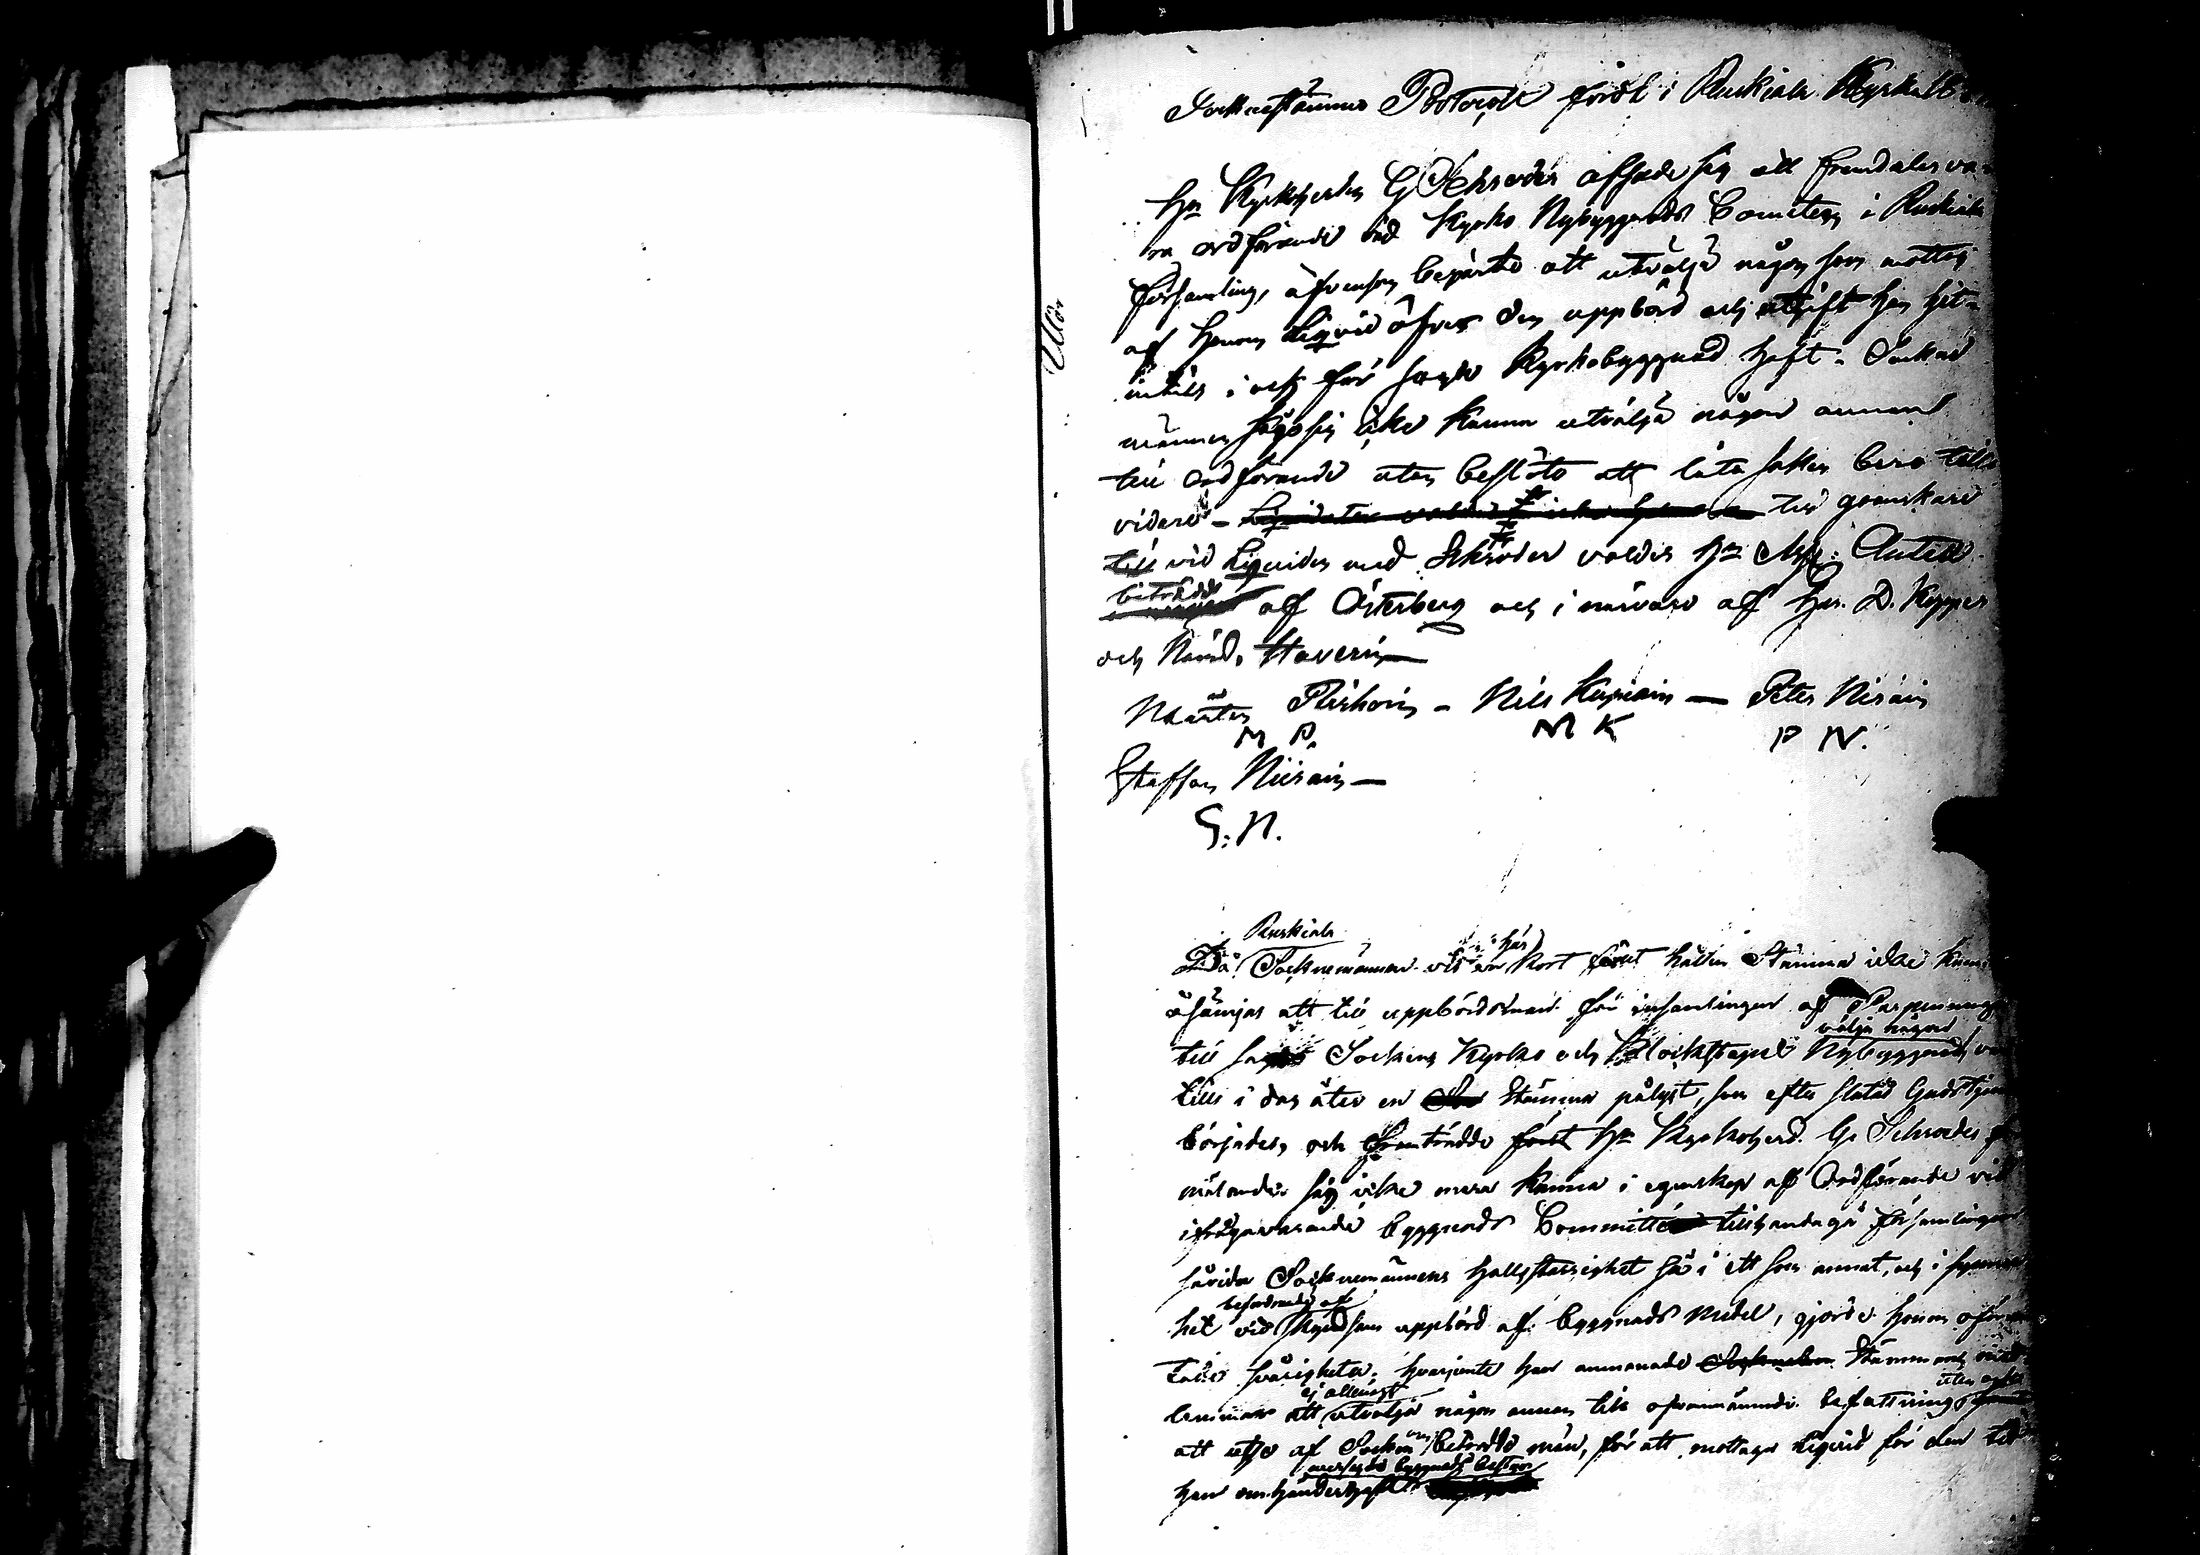 Sockenstämmo Protocoll fördt i Ruskiala Kyrka
Hr Kyrkoherden G Schroder afsade sig att framdeles va-
ra ordförande vid Kyrko Nybyggnads Comiteen i Ruskiala
församling, äfvensom begärte att utvälja någon som mottog
af honom Liqvid öfver den uppbörd och utgift han hit-
intils i och för sagde Kyrkobyggnad haft. Sockne
männen sågo sig icke kunna utvälja någon annan
till ordförande utan beslöto att låta saken bero tills
vidare - till granskare
till vid Liquiden med Schröder valdes Hr Antell
biträdd af Österberg och i närvaro af Hr. D. Koppes
och Nämd. Haverin
Mårten Pirhoin - Nils Kupiain - Peter Nirain
M P. N K P N.
Staffan Niirain -
S. N.
Ruskiala här
Då Socknemännen vid en kort förut hållen Stämma icke kun
åsämjas att till uppbördsman för insamlingen af
välja någon
till Sockens Kyrko och Klockstapel Nybyggnad
tills i dag åter en Stämma pålyst, som efter slutad Gudstjen
börjades, och framträdde först Hr Kyrkoherd. G. Schroder
mälande sig icke mera kunna i egenskap af Ordförande vid
ifrågavarande byggnads Committé tillhandagå församlingen
såvida Sockenmännens hallstarrighet så i ett som annat, och i synner
het vid uppbörd af byggnads medel, gjorde honom
svårigheter; hvarjemte han anmanade Stämmans
ej allenast utan ock
lemmar att utvälja någon annan till ofvannämnde befattning
att utse af Socknen betrodde män, för att mottaga Liqvid för den tid
byggnads bestyr
han om händerhaft